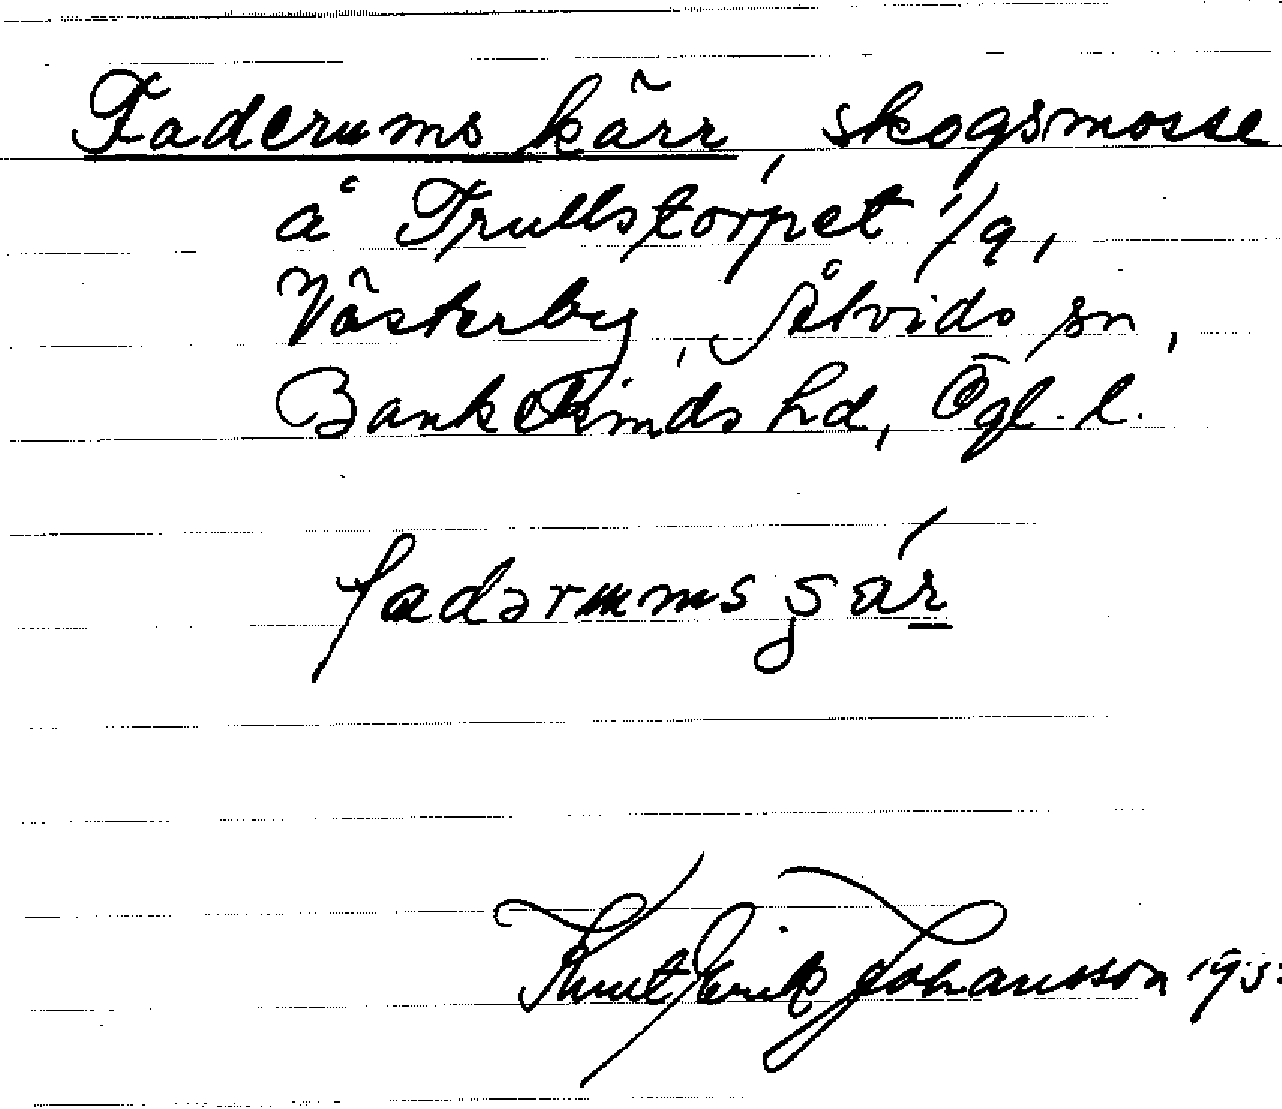 Faderums kärr, skogsmosse
å Trullstorpet 1/9,
Västerby, Åtvids sn,
Bankekinds hd, Ögl. l.
fadərumsşár
Knut Erik Johansson 193